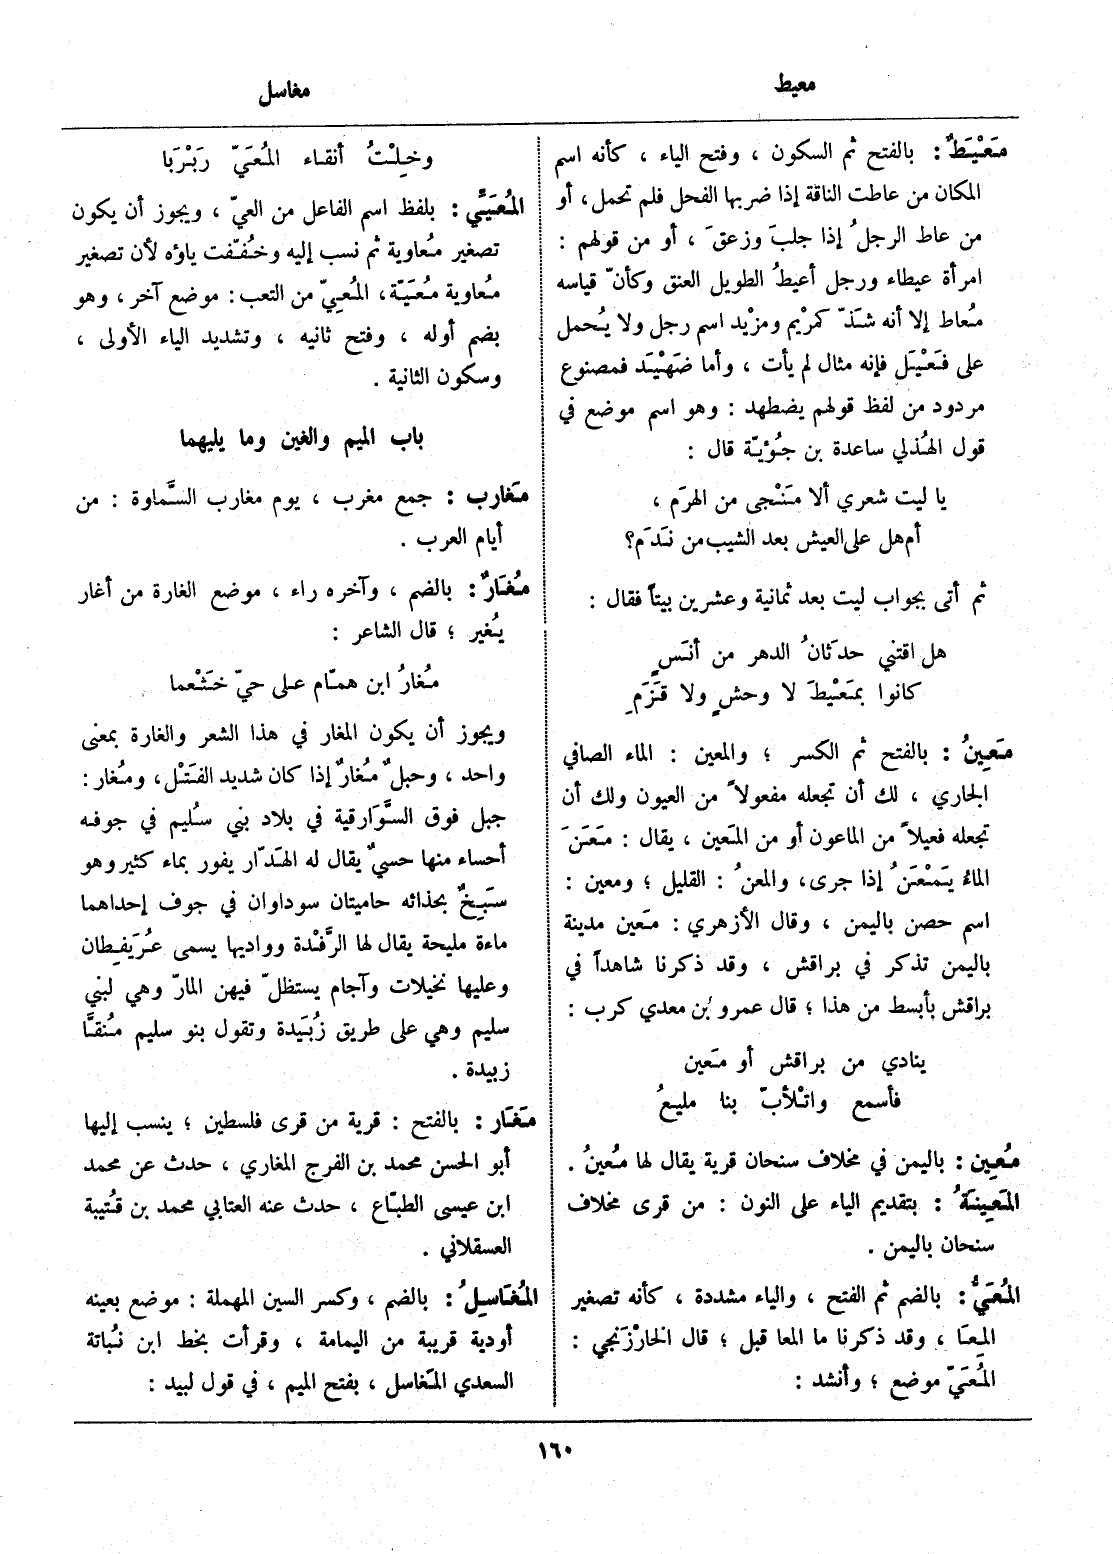 معيط
مغاسل
مَعْيَطٌ : بالفتح ثم السكون ، وفتح الياء ، كأنه اسم
المكان من عاطت الناقة إذا ضربها الفحل فلم تحمل، أو
من عاط الرجلُ إذا جلبَ وزعقَ ، أو من قولهم :
امرأة عيطاء ورجل أعيطُ الطويل العنق وكأنّ قياسه
مُعاط إلا أنه شَذّ كمرْيم ومزْيد اسم رجل ولا يُحمل
على فَعْيَل فإنه مثال لم يأت ، وأما ضَهْيَد فمصنوع
مردود من لفظ قولهم يضطهد : وهو اسم موضع في
قول الهُذلي ساعدة بن جُؤيّة قال :
يا ليت شعري ألا مَنْجى من الهرَم ،
أم هل على العيش بعد الشيب من نَدَم؟
ثم أتى بجواب ليت بعد ثمانية وعشرين بيتاً فقال :
هل اقتني حدَثانُ الدهر من أنَسٍ
كانوا بمَعْيَطَ لا وحشٍ ولا قَزَمِ
مَعِينُ : بالفتح ثم الكسر ؛ والمعين : الماء الصافي
الجاري ، لك أن تجعله مفعولاً من العيون ولك أن
تجعله فعيلاً من الماعون أو من المَعين ، يقال : مَعَنَ
الماءُ يَمْعَنُ إذا جرى، والمعنُ : القليل ؛ ومعين :
اسم حصن باليمن ، وقال الأزهري : مَعين مدينة
باليمن تذكر في براقش ، وقد ذكرنا شاهداً في
براقش بأبسط من هذا ؛ قال عمرو بن معدي كرب :
ينادي من براقش أو مَعين
فأسمع واتْلأبّ بنا مليعُ
مُعِين : باليمن في مخلاف سنحان قرية يقال لها مُعينُ .
المَعِينَةُ : بتقديم الياء على النون : من قرى مخلاف
سنحان باليمن .
المُعَيُّ : بالضم ثم الفتح ، والياء مشددة ، كأنه تصغير
المِعَا ، وقد ذكرنا ما المعا قبل ؛ قال الخارْزَنجي :
المُعَيّ موضع ؛ وأنشد :
وخِلْتُ أنقاء المُعَيّ رَبْرَبا
المُعَيَّي : بلفظ اسم الفاعل من العيّ ، ويجوز أن يكون
تصغير مُعاوية ثم نسب إليه وخُفّفت ياؤه لأن تصغير
مُعاوية مُعَيّة، المُعيِيّ من التعب: موضع آخر ، وهو
بضم أوله ، وفتح ثانيه ، وتشديد الياء الأولى ،
وسكون الثانية .
باب الميم والغين وما يليهما
مَغَارب : جمع مغرب ، يوم مغارب السَّماوة : من
أيام العرب .
مُغَارٌ : بالضم ، وآخره راء ، موضع الغارة من أغار
يُغير ؛ قال الشاعر :
مُغارُ ابن همّام على حيّ خَثْعما
ويجوز أن يكون المغار في هذا الشعر والغارة بمعنى
واحد ، وحبلٌ مُغارٌ إذا كان شديد الفَتْل، ومُغار :
جبل فوق السَّوَارقية في بلاد بني سُليم في جوفه
أحساء منها حسيٌ يقال له الهَدّار يفور بماء كثير وهو
سَبِخٌ بحذائه حاميتان سوداوان في جوف إحداهما
ماءة مليحة يقال لها الرَّفْدة وواديها يسمى عُرَيفِطان
وعليها نخيلات وآجام يستظلّ فيهن المارّ وهي لبني
سليم وهي على طريق زُبَيدة وتقول بنو سليم مُنقَّا
زبيدة .
مَغَار : بالفتح : قرية من قرى فلسطين ؛ ينسب إليها
أبو الحسن محمد بن الفرج المغاري ، حدث عن محمد
ابن عيسى الطبّاع ، حدث عنه العتابي محمد بن قُتيبة
العسقلاني .
المُغَاسِلُ : بالضم ، وكسر السين المهملة : موضع بعينه
أودية قريبة من اليمامة ، وقرأت بخط ابن نُباتة
السعدي المَغاسل ، بفتح الميم ، في قول لبيد :
١٦٠